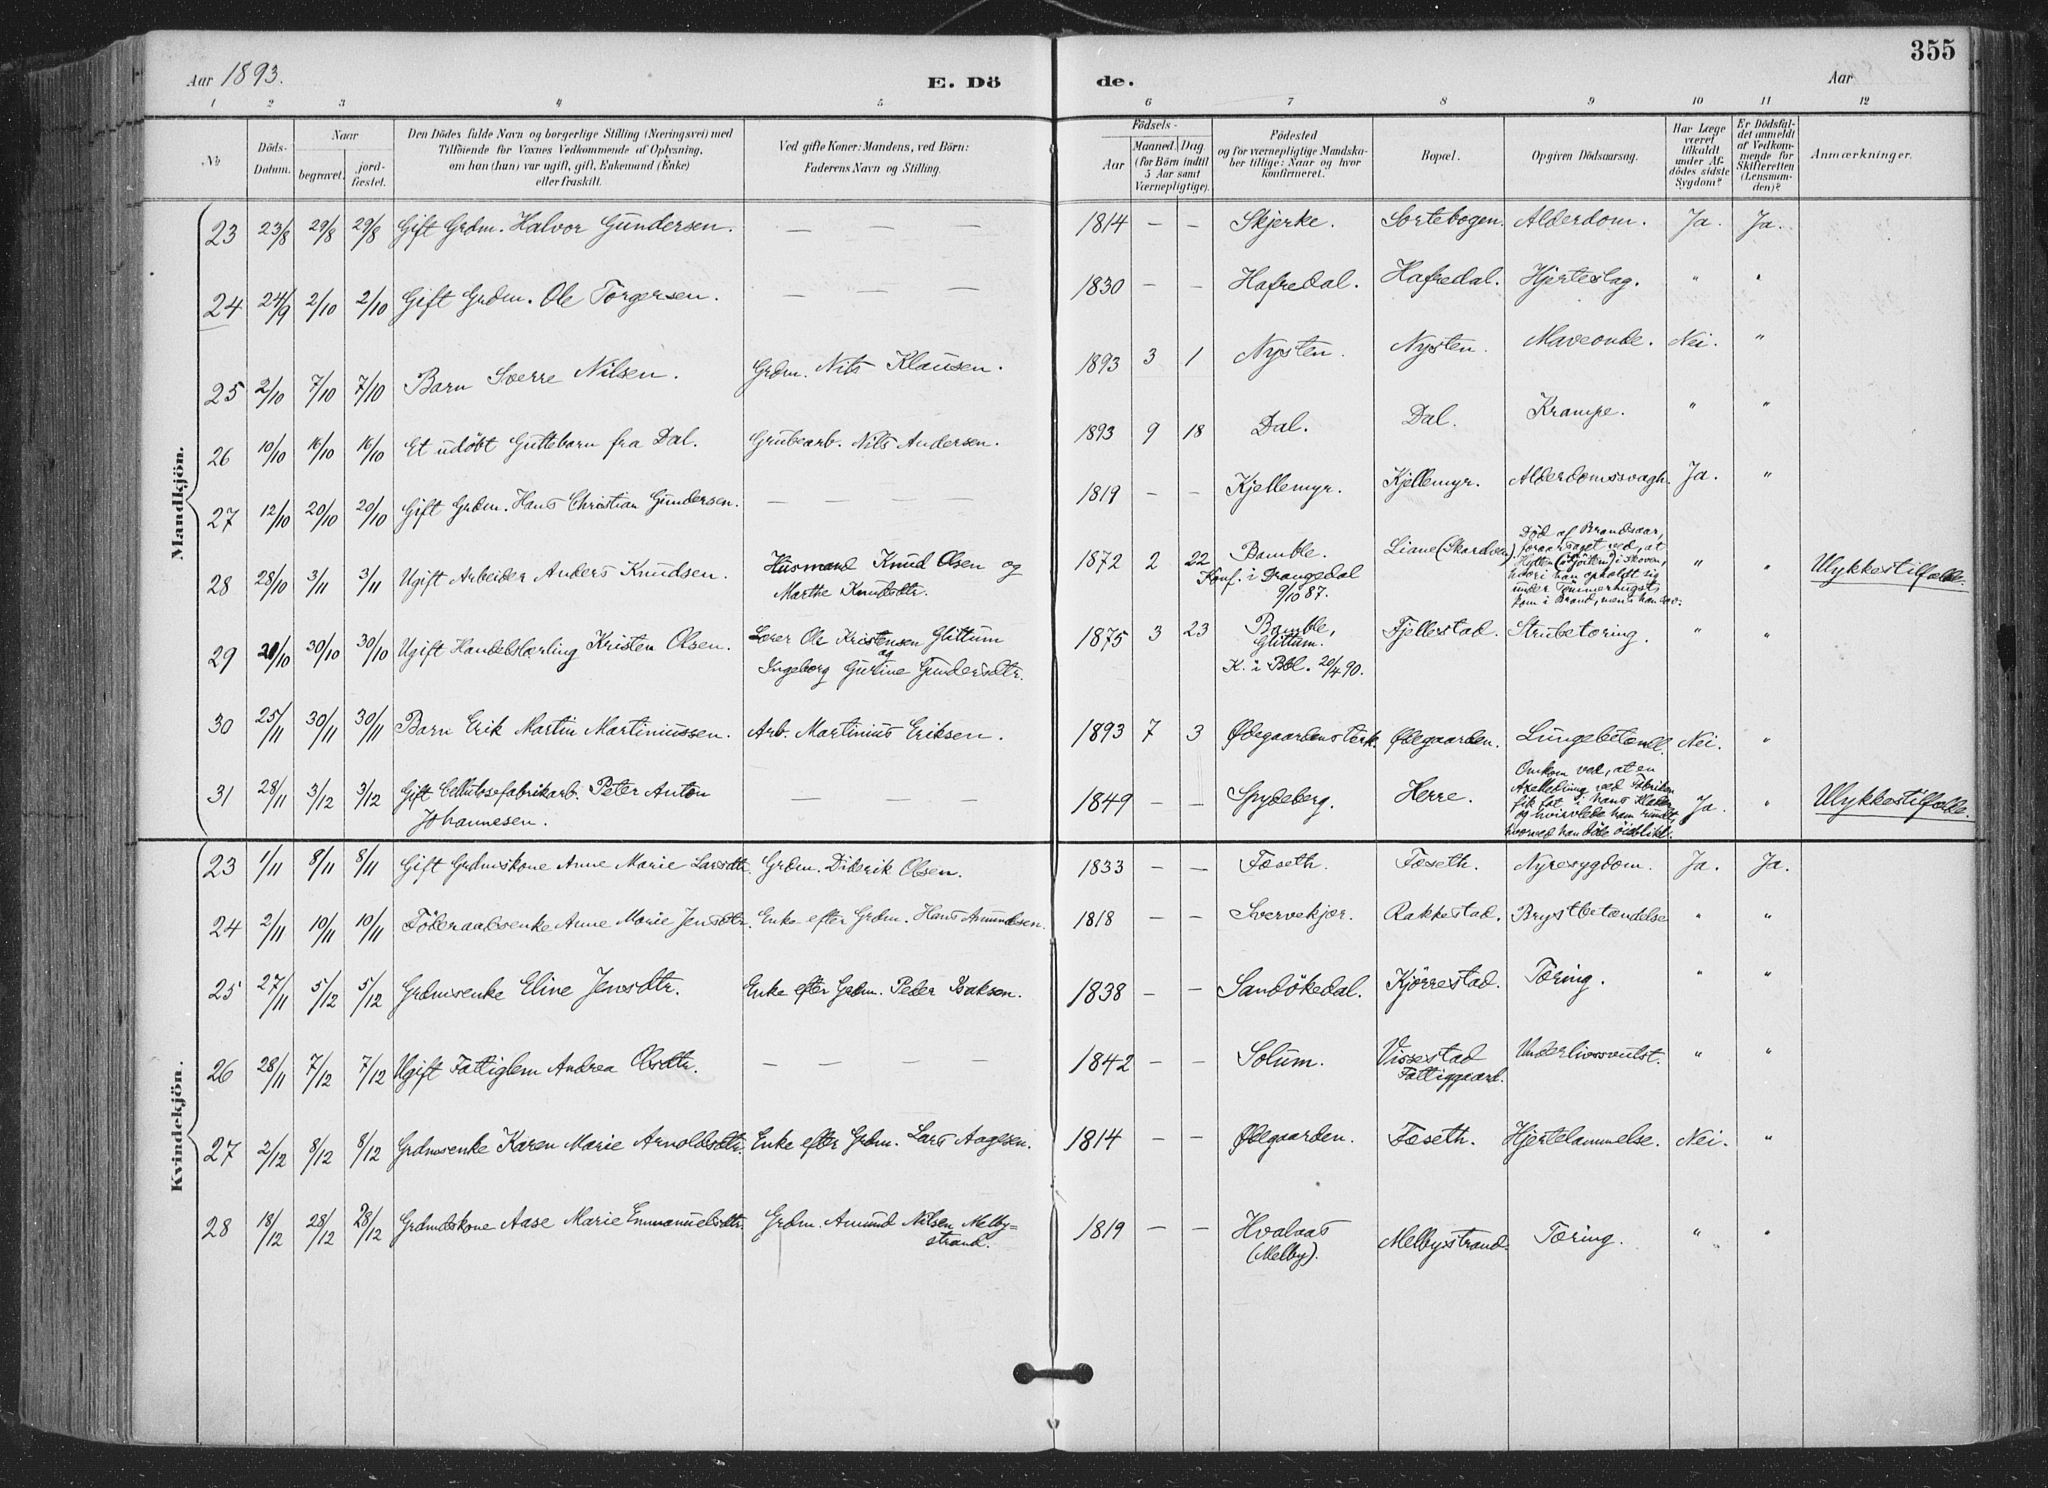 355
Aar 1893. E. Dö de. Aar
1 2 3 4 5 6 7 8 9 10 11 12
No
Döds-Datum.
Naar begravet. jordfæstet.
Den Dödes fulde Navn og borgerlige Stilling (Næringsvei) med
Tilföiende for Voxnes Vedkommende af Oplysning,
om han (hun) var ugift, gift, Enkemand (Enke)
eller fraskilt.
Ved gifte Koner: Mandens, ved Börn:
Faderens Navn og Stilling.
Födsels-
Aar
Maaned. Dag
(for Börn indtil
5 Aar samt
Værnepligtige).
Födested
og for værnepligtige Mandskaber tillige: Naar og hvor
konfirmeret.
Bopæl.
Opgiven Dödsaarsag.
Har Læge
været
tilkaldt
under Afdödes sidste
Sygdom?
Er Dödsfaldet anmeldt
af Vedkommende for
Skifteretten
(Lensmanden)?
Anmærkninger.
Mandkjön.
23 23/8 29/8 29/8 Gift Grdm. Halvor Gundersen. — — — 1814 — — Skjerke. Sortebogen. Alderdom. Ja. Ja.
24 24/9 2/10 2/10 Gift Grdm. Ole Torgersen. — — — 1830 — — Hafredal. Hafredal. Hjerteslag. " "
25 2/10 7/10 7/10 Barn Sverre Nilsen. Grdm. Nils Klausen. 1893 3 1 Nysten. Nysten. Maveonde. Nei. "
26 10/10 16/10 16/10 Et udöbt Guttebarn fra Dal. Grubearb. Nils Andersen. 1893 9 18 Dal. Dal. Krampe. " "
27 12/10 20/10 20/10 Gift Grdm. Hans Christian Gundersen. — — — 1819 — — Kjellemyr. Kjellemyr. Alderdomssvagh. Ja. "
28 28/10 3/11 3/11 Ugift Arbeider Anders Knudsen. Husmand Knud Olsen og
Marthe Knudsdtr. 1872 2 22 Bamble.
Konf. i Drangedal
9/10 87. Liane Død af Brandsaar,
foraarsaget ved, at
Hytten i Skoven,
hvori han opholdt sig
under Tømmerhugst,
kom i Brand, mens han sov. " " Ulykkestilfælde.
29 20/10 30/10 30/10 Ugift Handelslærling Kristen Olsen. Lærer Ole Kristensen Glittum
og
Ingeborg Gurine Gundersdtr. 1875 3 23 Bamble,
Glittum.
K. i Bbl. 20/4 90. Fjellestad. Strubetæring. " "
30 25/11 30/11 30/11 Barn Erik Martin Martiniussen. Arb. Martinius Eriksen. 1893 7 3 Ødegaardens Verk. Ødegaarden. Lungebetændl. Nei. "
31 28/11 3/12 3/12 Gift Cellulosefabrikarb. Peter Anton
Johannesen. — — — 1849 — — Spydeberg. Herre. Omkom ved, at en
Axelledning ved Fabriken
fik fat i hans Klæder
og hvirvlede ham rundt,
hvorved han døde øieblikl. Ja. " Ulykkestilfælde.
Kvindekjön.
23 1/11 8/11 8/11 Gift Grdmskone Anne Marie Larsdtr. Grdm. Diderik Olsen. 1833 — — Fæseth. Fæseth. Nyresygdom. Ja. Ja.
24 2/11 10/11 10/11 Föderaadsenke Anne Marie Jensdtr. Enke efter Grdm. Hans Amundsen. 1818 — — Svervekjær. Rakkestad. Brystbetændelse " "
25 27/11 5/12 5/12 Grdmsenke Eline Jensdtr. Enke efter Grdm. Peder Isaksen. 1838 — — Sandökedal. Kjörrestad. Tæring. " "
26 28/11 7/12 7/12 Ugift Fattiglem Andrea Olsdtr. — — — 1842 — — Solum. Vissestad
Fattiggaard. Underlivssvulst. " "
27 2/12 8/12 8/12 Grdmsenke Karen Marie Arnoldsdtr. Enke efter Grdm. Lars Aagesen. 1814 — — Ødegaarden. Fæseth. Hjertelammelse. Nei. "
28 18/12 28/12 28/12 Grdmdskone Aase Marie Emmanuelsdtr. Grdm. Amund Nilsen Melby-
strand. 1819 — — Hvalaas
(Melby). Melbystrand. Tæring. " "